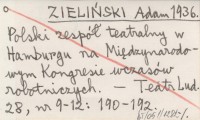 ZIELIŃSKI Adam 1936.
Polski zespół teatralny w
Hamburgu na Międzynarodo-
wym Kongresie wczasów
robotniczych. — Teatr Lud.
28, nr 9-12: 190-192.